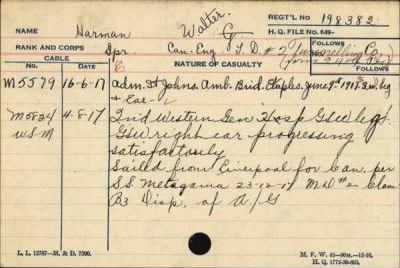 REGT'L No 198382
NAME Harman Walter G.
H. Q. FILE No. 649-
RANK AND CORPS Spr. Can. Eng. T. D. #2 Tunnelling Co
FOLLOWS
CABLE
NATURE OF CASUALTY
FOLLOWS
No. DATE
M5579 16-6-17 Adm. St Johns. Amb. Brid. Etaples. June 9th 1917. S.W. leg
+ Ear
M5834 4-8-17 2nd Western Gen Hosp GSW leg
WSM GSW right ear progressing
satisfactorily
Sailed from Liverpool for Can. per
S.S. Metagama 23-12-17 M.D #2 Class
B3 Disp. of A/G
L. L. 12767—M. & D. 7390.
M. F. W. 42—50M.—12-16.
H. Q. 1772-39-893.